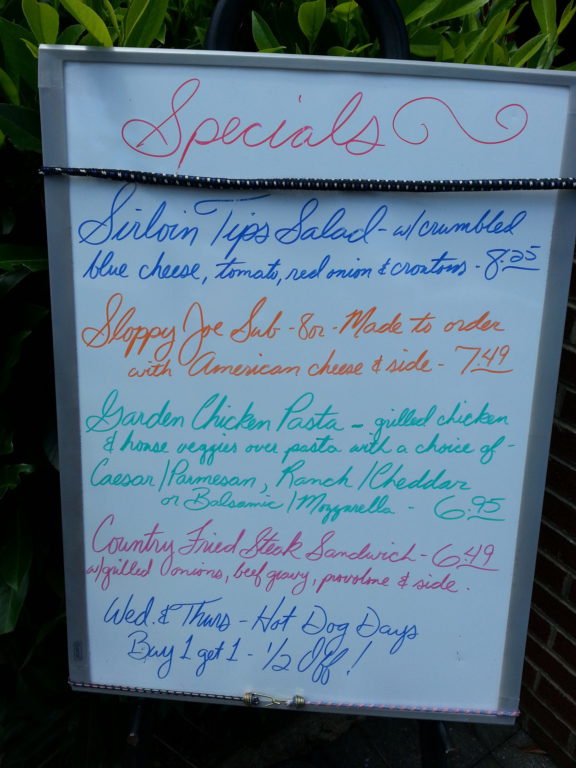 Specials
Sirloin Tips Salad - w/ crumbled
blue cheese, tomato, red onion & croutons - 8.25
Sloppy Joe Sub - 8oz - Made to order
with American cheese & side - 7.49
Garden Chicken Pasta - grilled chicken
& house veggies over pasta with a choice of -
Caesar/Parmesan, Ranch/Cheddar
or Balsamic/Mozzarella - 6.95
Country Fried Steak Sandwich - 6.49
w/grilled onions, beef gravy, provolone & side.
Wed. & Thurs - Hot Dog Days
Buy 1 get 1 - 1/2 Off!